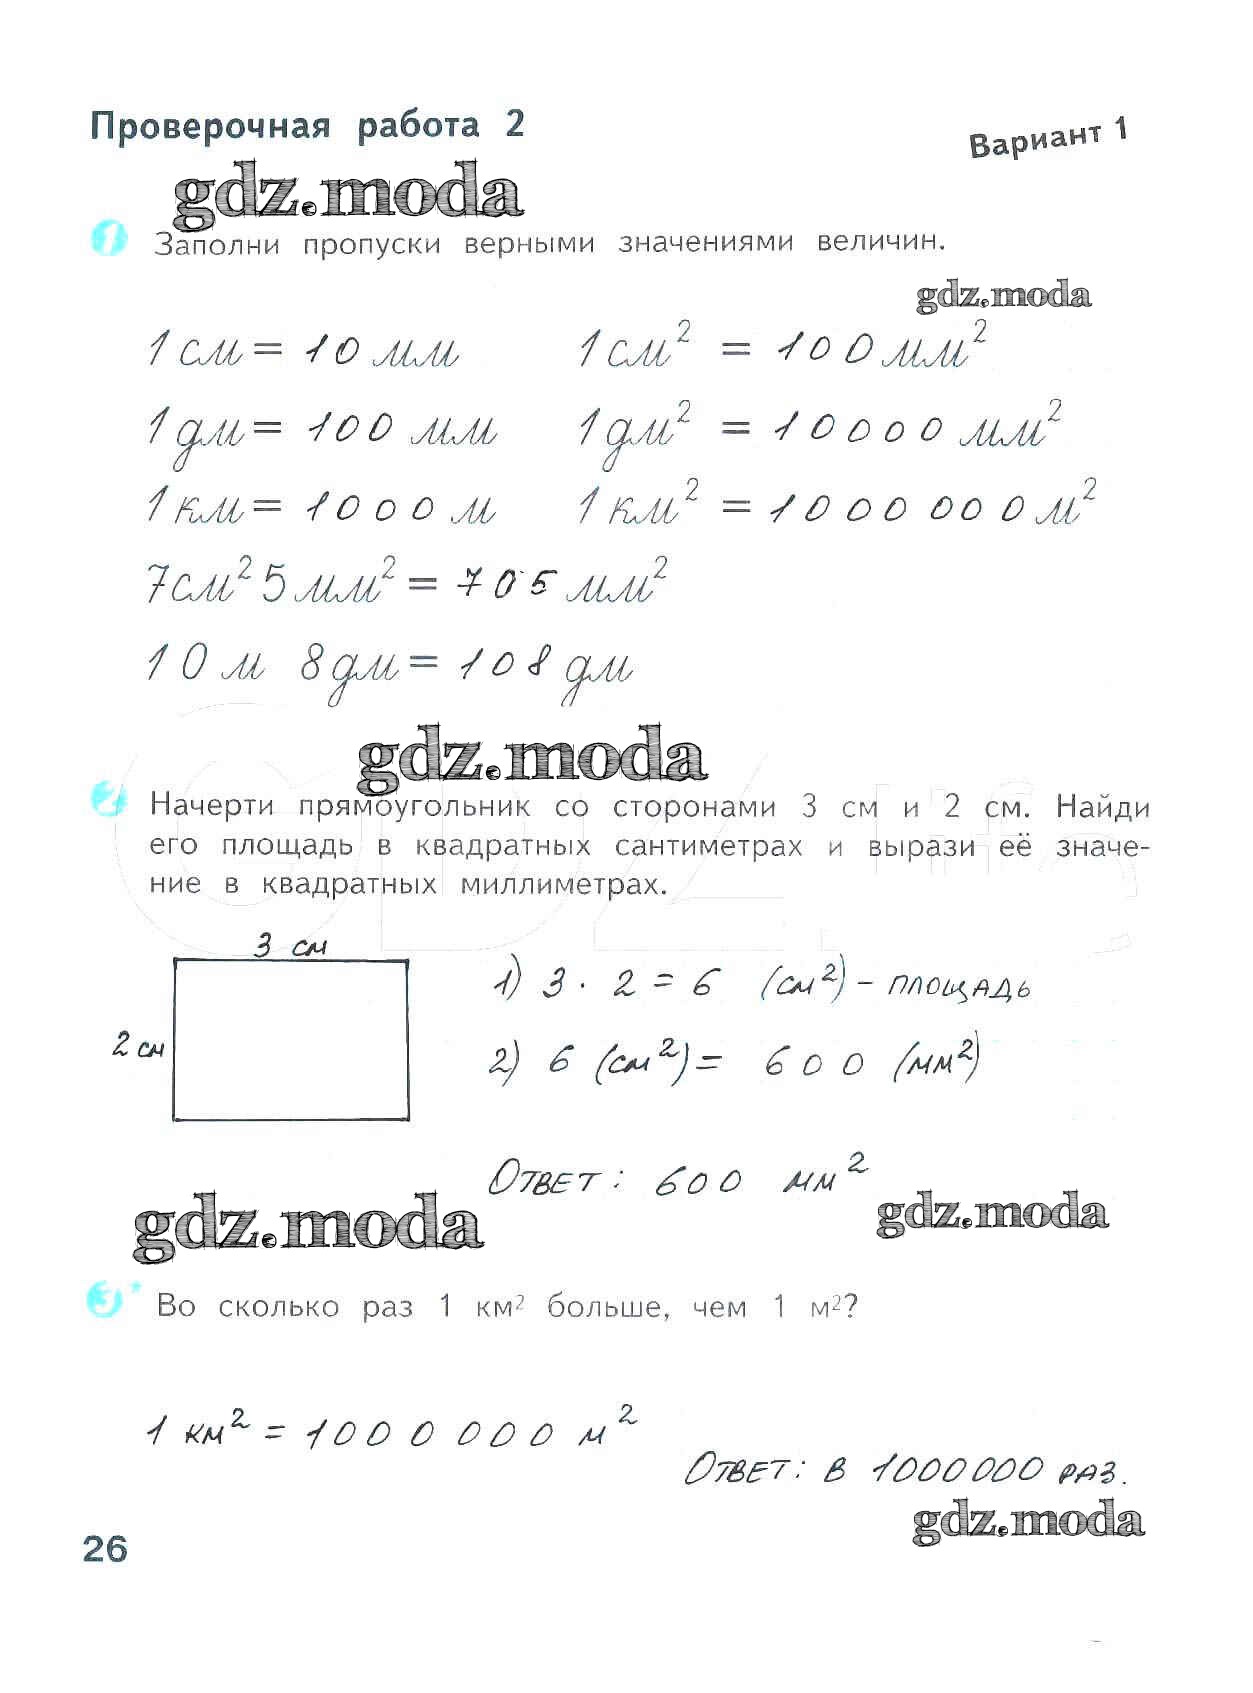 Проверочная работа 2
Вариант 1
gdz.moda
1 Заполни пропуски верными значениями величин.
gdz.moda
1 см = 10 мм 1 см² = 100 мм²
1 дм = 100 мм 1 дм² = 10000 мм²
1 км = 1000 м 1 км² = 1000 000 м²
7 см² 5 мм² = 705 мм²
10 м 8 дм = 108 дм
gdz.moda
2 Начерти прямоугольник со сторонами 3 см и 2 см. Найди
его площадь в квадратных сантиметрах и вырази её значе-
ние в квадратных миллиметрах.
3 см
2 см
1) 3 · 2 = 6 (см²) – площадь
2) 6 (см²) = 600 (мм²)
Ответ: 600 мм²
gdz.moda
gdz.moda
3* Во сколько раз 1 км² больше, чем 1 м²?
1 км² = 1000 000 м²
Ответ: в 1000000 раз.
gdz.moda
26